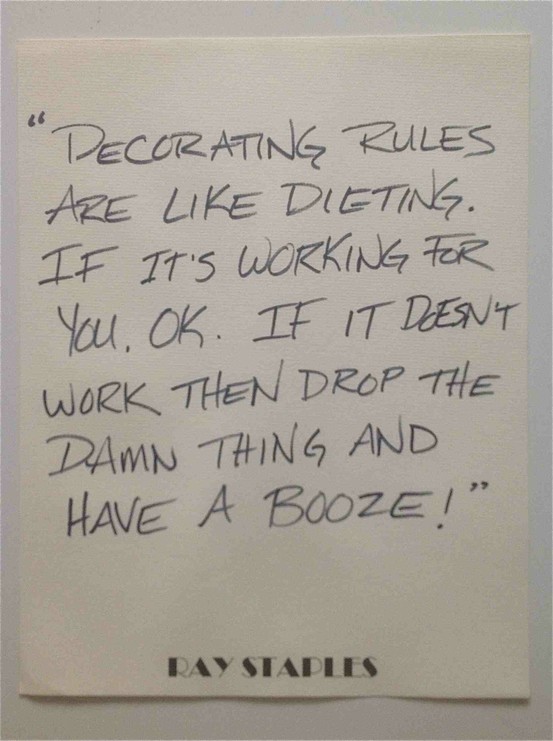 “DECORATING RULES
ARE LIKE DIETING.
IF IT'S WORKING FOR
YOU. OK. IF IT DOESN'T
WORK THEN DROP THE
DAMN THING AND
HAVE A BOOZE!”
RAY STAPLES